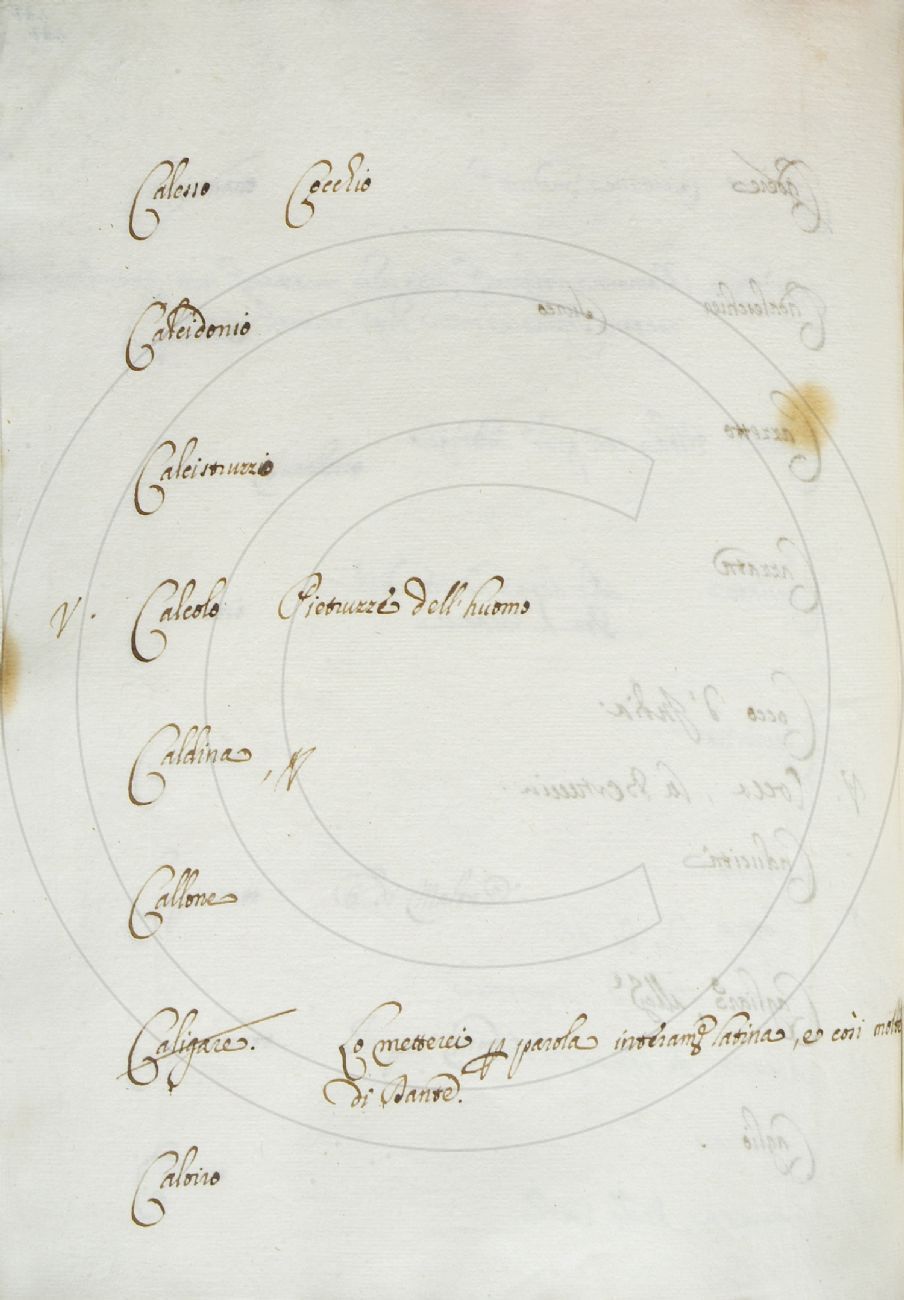 Calesso Cocchio
Calcidonio
Calcistruzzo
V. Calcolo Pietruzze dell'huomo
Caldina
Callone
Caligare. Lo metterei parola interam.e latina, e così molte
di Dante.